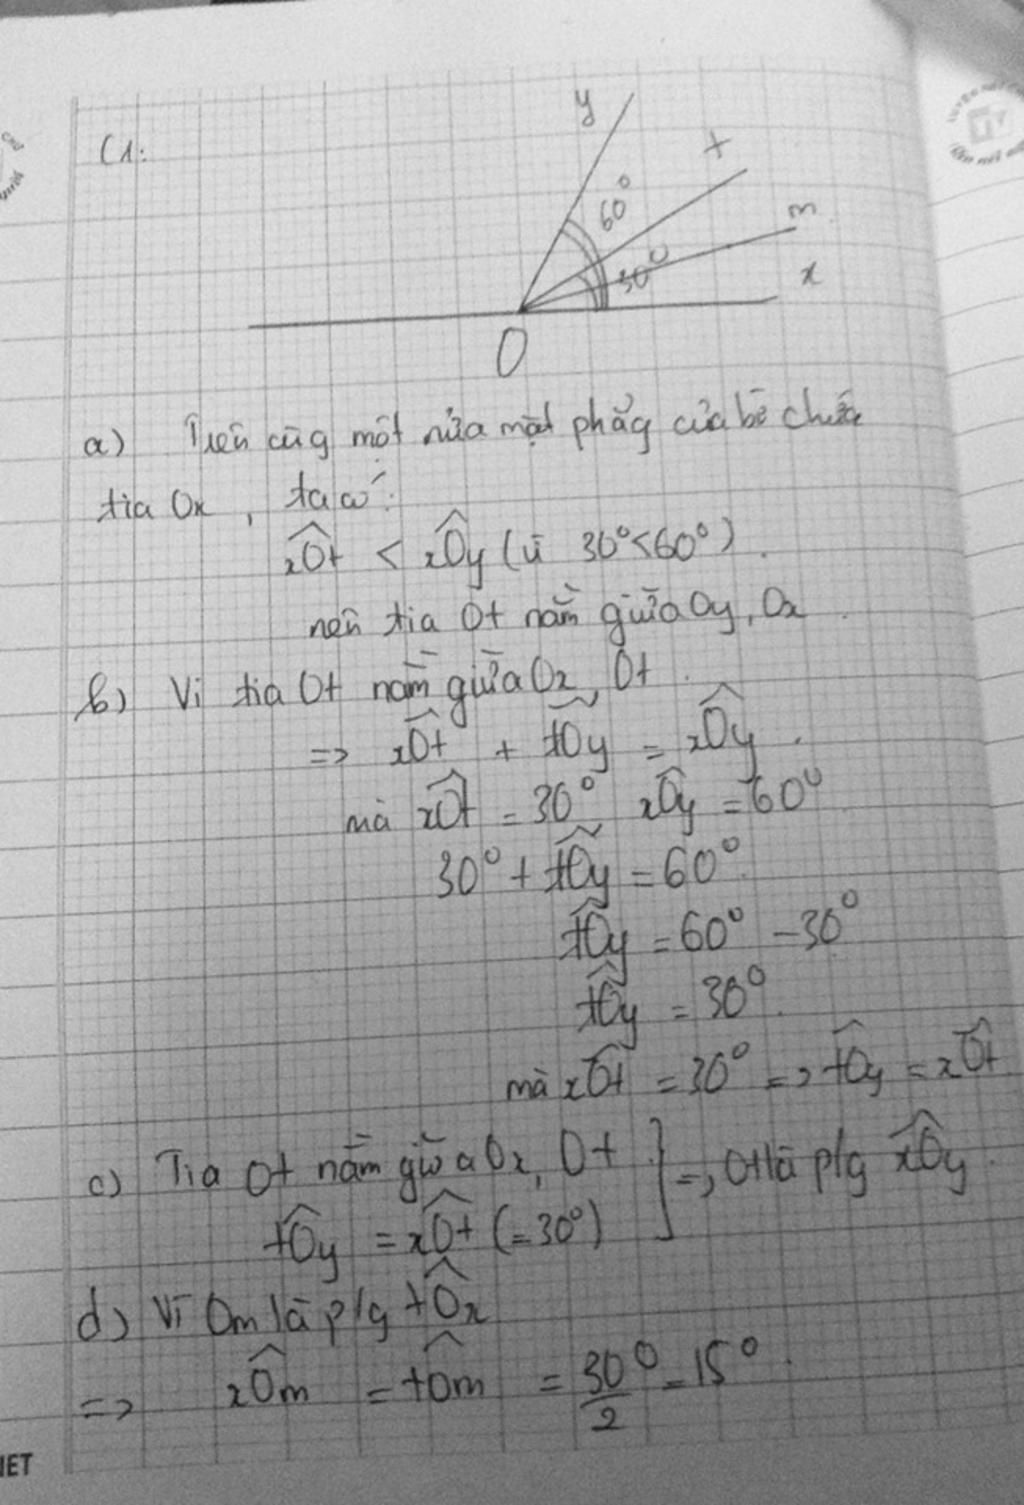 C1:
y
t
60°
m
30°
x
O
a) Trên cùg một nửa mặt phẳg của bờ chứa
tia Ox, ta có:
xÔt < xÔy (vì 30°<60°).
nên tia Ot nằm giữa Oy, Ox.
b) Vì tia Ot nằm giữa Ox, Ot.
=> xÔt + tÔy = xÔy.
mà xÔt = 30°, xÔy = 60°
30° + tÔy = 60°.
tÔy = 60° - 30°
tÔy = 30°.
mà xÔt = 30° => tÔy = xÔt
c) Tia Ot nằm giữa Ox, Ot } => Ot là p/g xÔy.
tÔy = xÔt (=30°)
d) Vì Om là p/g tÔx
=> xÔm = tÔm = 30°/2 = 15°.
IET